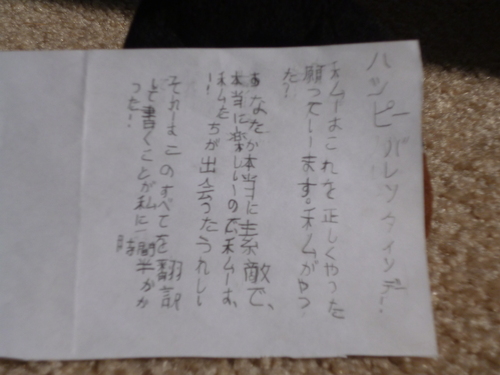 ハッピー バレンタインデー!
私はこれを正しくやった
願っています。私がやっ
た?
あなたが本当に素敵で、
本当に楽しいので私は、
私たちが出会ったうれしい
!
それはこのすべてを翻訳
して書くことが私に一時間半かか
った!